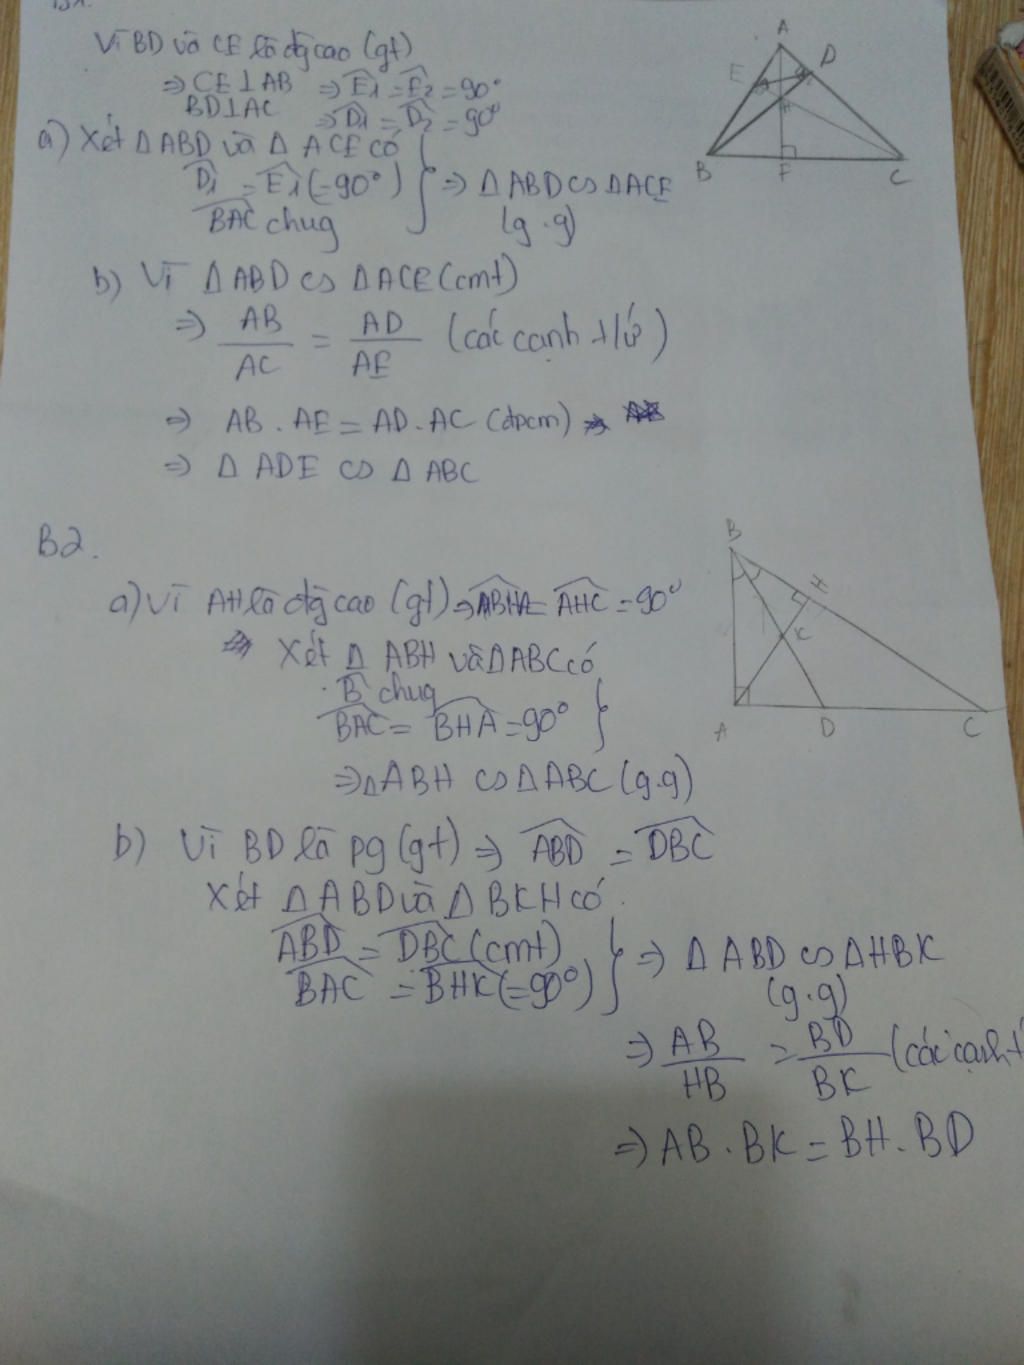 B1.
Vì BD và CE là đg cao (gt)
⇒ CE⊥AB ⇒ Ê1 = Ê2 = 90°
BD⊥AC ⇒ D̂1 = D̂2 = 90°
a) Xét Δ ABD và Δ ACE có
D̂1 = Ê1 (=90°) } ⇒ Δ ABD ∽ Δ ACE
B̂AC chug (g.g)
b) Vì Δ ABD ∽ Δ ACE (cmt)
⇒ AB/AC = AD/AE (các cạnh t/ứ)
⇒ AB . AE = AD . AC (đpcm) ⇒
⇒ Δ ADE ∽ Δ ABC
A
D
E
H
B
F
C
B2.
a) Vì AH là đg cao (gt) ⇒ B̂HA = ÂHC = 90°
Xét Δ ABH và Δ ABC có
B̂ chug
B̂AC = B̂HA = 90° }
⇒ Δ ABH ∽ Δ ABC (g.g)
b) Vì BD là pg (gt) ⇒ ÂBD = D̂BC
Xét Δ ABD và Δ BKH có
ÂBD = D̂BC (cmt) } ⇒ Δ ABD ∽ Δ HBK
B̂AC = B̂HK (=90°) (g.g)
⇒ AB/HB = BD/BK (các cạnh
⇒ AB . BK = BH . BD
B
H
K
A
D
C